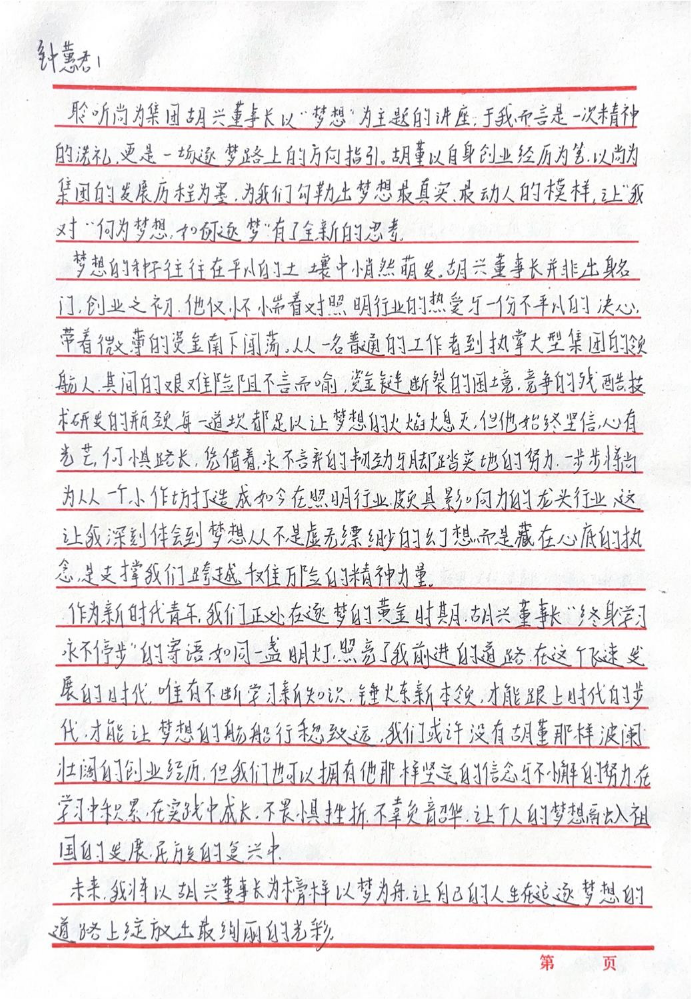 钟蕙君1
聆听尚为集团胡兴董事长以“梦想”为主题的讲座,于我而言是一次精神
的洗礼,更是一场逐梦路上的方向指引。胡董以自身创业经历为笔,以尚为
集团的发展历程为墨,为我们勾勒出梦想最真实、最动人的模样,让“我
对“何为梦想,如何逐梦”有了全新的思考。
梦想的种子往往在平凡的土壤中悄然萌发。胡兴董事长并非出身名
门,创业之初,他仅怀揣着对照明行业的热爱与一份不平凡的决心,
带着微薄的资金南下闯荡。从一名普通的工作者到执掌大型集团的领
舵人,其间的艰难险阻不言而喻,资金链断裂的困境,竞争的残酷,技
术研发的瓶颈,每一道坎都足以让梦想的火焰熄灭,但他始终坚信,心有
光芒,何惧路长,凭借着永不言弃的韧劲与脚踏实地的努力,一步步将尚
为从一个小作坊打造成如今在照明行业颇具影响力的龙头行业,这
让我深刻体会到梦想从不是虚无缥缈的幻想,而是藏在心底的执
念,是支撑我们跨越艰难万险的精神力量。
作为新时代青年,我们正处在逐梦的黄金时期,胡兴董事长“终身学习
永不停步”的寄语,如同一盏明灯,照亮了我前进的道路,在这个飞速发
展的时代,唯有不断学习新知识,锤炼新本领,才能跟上时代的步
伐,才能让梦想的航船行稳致远,我们或许没有胡董那样波澜
壮阔的创业经历,但我们也可以拥有他那样坚定的信念与不懈的努力,在
学习中积累,在实践中成长,不畏惧挫折,不辜负韶华,让个人的梦想融入祖
国的发展,民族的复兴中。
未来,我将以胡兴董事长为榜样以梦为舟,让自己的人生在追逐梦想的
道路上绽放出最绚丽的光彩。
第 页